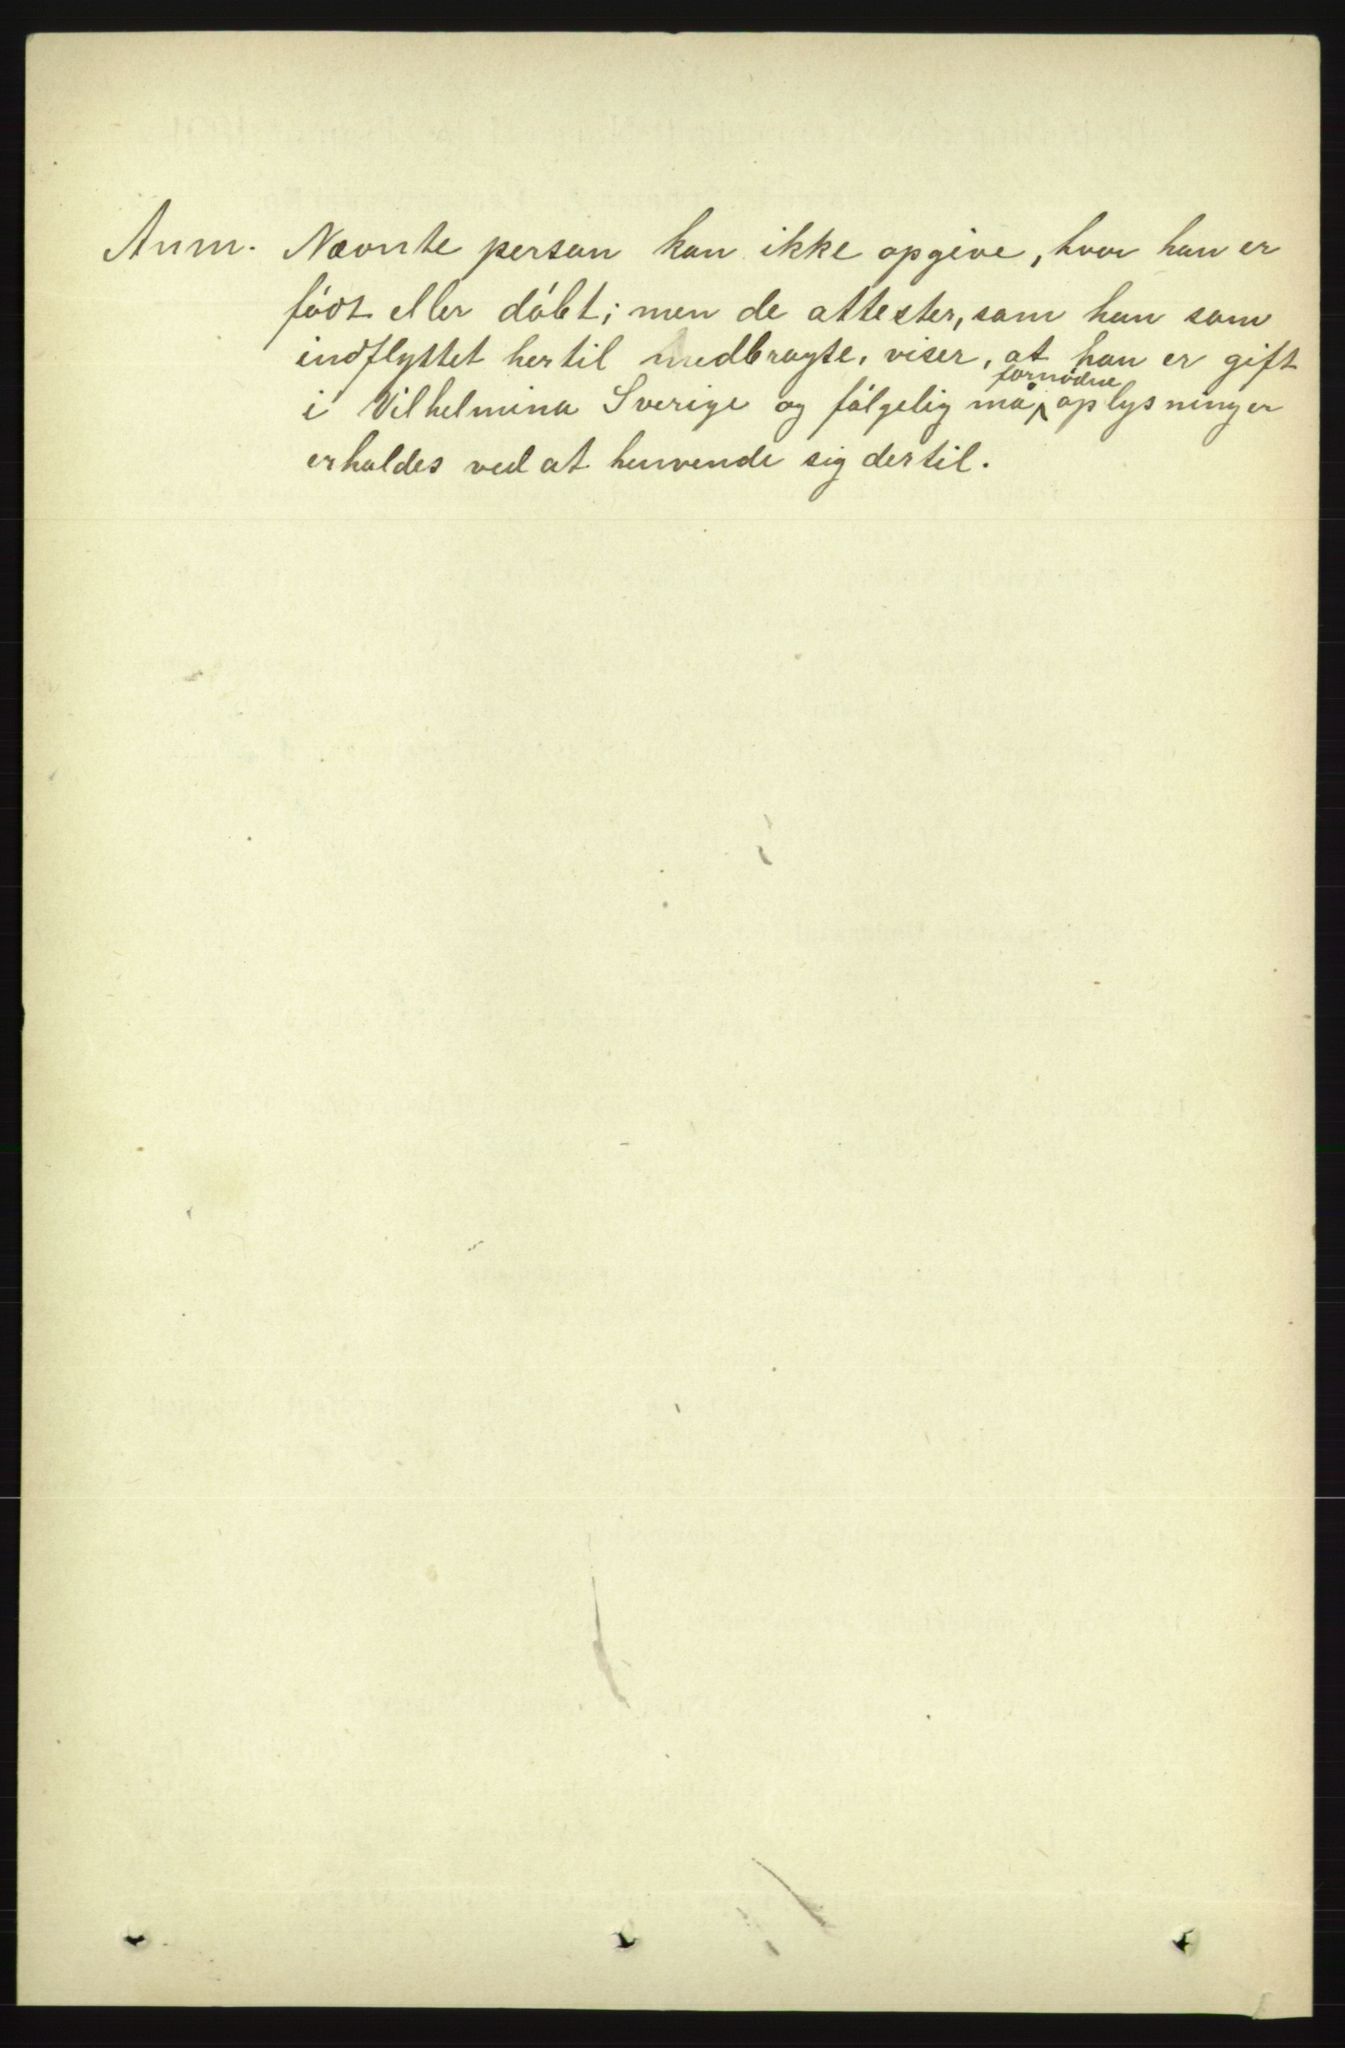 Anm. Nævnte person kan ikke opgive, hvor han er
født eller døbt; men de attester, som han som
indflyttet hertil medbragte, viser, at han er gift
i Vilhelmina Sverige og følgelig må fornødne oplysninger
erholdes ved at henvende sig dertil.